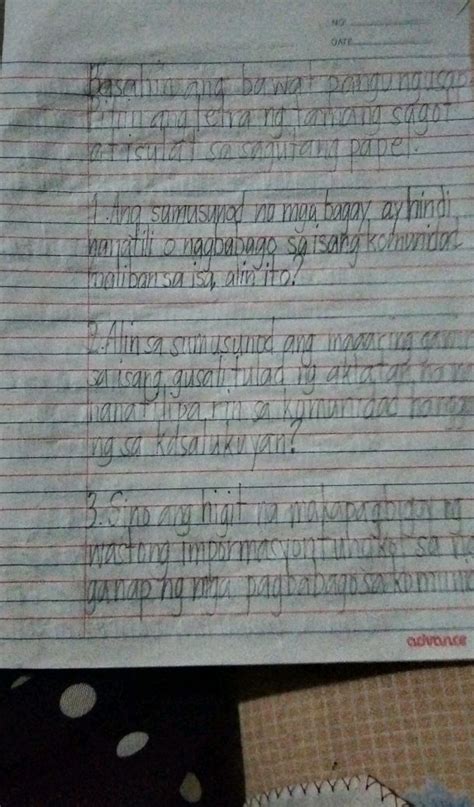 NO.
DATE
Basahin ang bawat pangungusap
Piliin ang letra ng tamang sagot
at isulat sa sagutang papel.
1. Ang sumusunod na mga bagay ay hindi
nanatili o nagbabago sa isang komunidad
maliban sa isa, alin ito?
2. Alin sa sumusunod ang maaaring
sa isang gusali tulad ng aklatan
nanatili ba rin sa komunidad
ng sa kasalukuyan?
3. Sino ang higit na makapagbigay ng
wastong impormasyon tungkol sa
ganap ng mga pagbabago sa komuni
advance